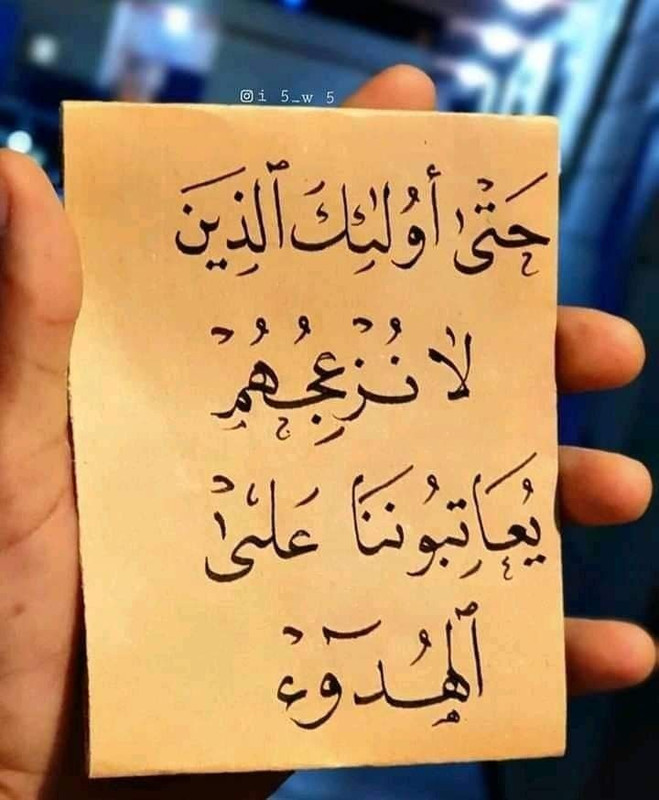 i 5_w 5
حَتىٰ أُولٰئِكَ ٱلَذِينَ
لٰا نُزْعِجُهُمْ
يُعَاتِبُونَنَا عَلىٰ
ٱلهُدوْء